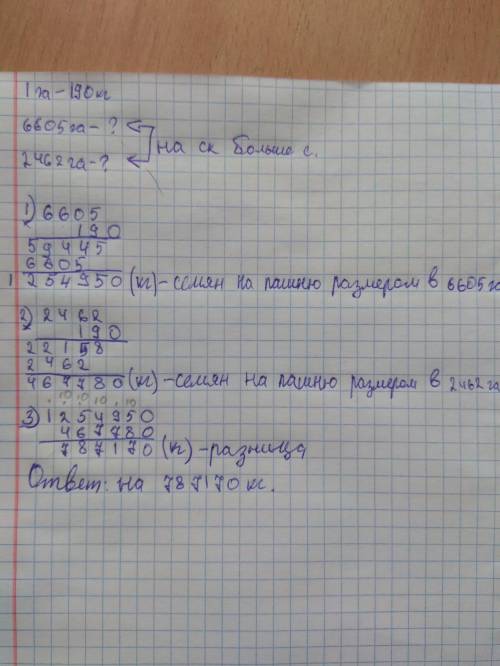 1 га – 190 кг
6605 га – ?
на ск больше с.
2462 га – ?
1) 6605
190
59445
6605
1254950 (кг) – семян на пашню размером в 6605 га
2) 2462
190
22158
2462
467780 (кг) – семян на пашню размером в 2462 га
. 10 10 . 10
3) 1254950
467780
787170 (кг) – разница
Ответ: на 787170 кг.